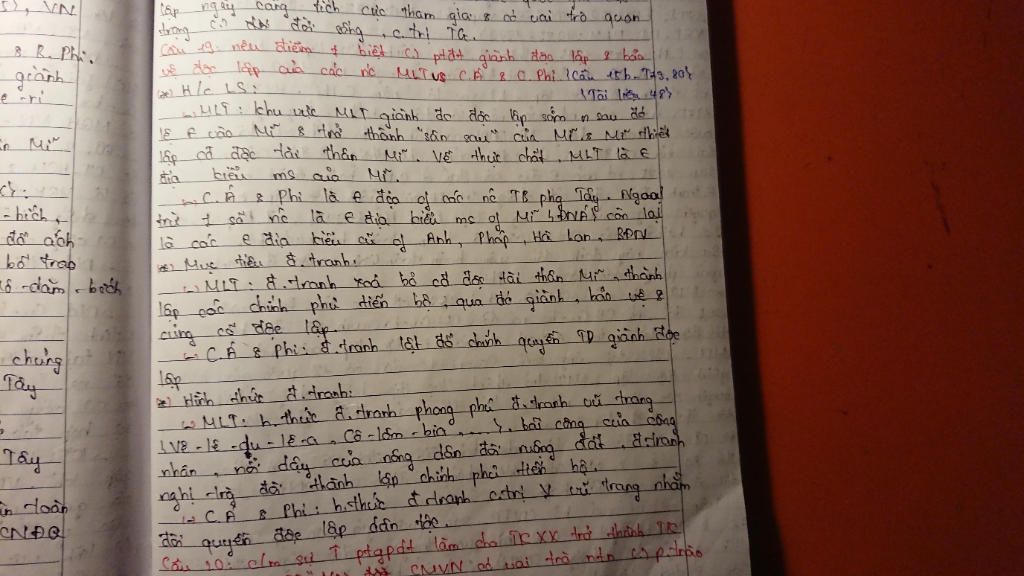 5), VN
& R. Phi.
giành
e-ri
Mĩ
-bích,
đổ ách
bồ trao
-dăm-bích
chủng
Tây
Tây
toàn
CNĐQ
lập ngày càng tích cực tham gia & có vai trò quan
trọng đời sống, c.trị TG.
Câu 19: nêu điểm ≠ biệt ptđt giành độc lập & bảo
vệ độc lập của các nc MLT vs C.Á & C Phi (Câu 15b. T 73, 80)
*) H/c LS: (Tài liệu 48)
MLT: khu vực MLT giành đc độc lập sớm sau đó
lệ vào Mĩ & trở thành "sân sau" của Mĩ & Mĩ thiết
lập cđ độc tài thân Mĩ. Về thực chất, MLT là
địa kiểu ms của Mĩ.
C.Á & Phi là địa of các nc TB phg Tây. Ngoại
trừ 1 số nc là địa kiểu ms of Mĩ (ĐNÁ) còn lại
là các địa kiểu cũ of Anh, Pháp, Hà Lan, BĐN
*) Mục tiêu đ.tranh:
MLT: đ.tranh xoá bỏ cđ độc tài thân Mĩ, thành
lập các chính phủ tiến bộ, qua đó giành, bảo vệ &
củng cố độc lập.
C.Á & Phi: đ.tranh lật đổ chính quyền TD giành độc
lập
*) Hình thức đ.tranh:
MLT: h.thức đ.tranh phong phú đ.tranh vũ trang
(Vê-lê-du-lê-a, Cô-lôm-bia,...), bãi công của công
nhân, nổi dậy của nông dân đòi ruộng đất, đ.tranh
nghị trg đòi thành lập chính phủ tiến bộ.
C.Á & Phi: h.thức đ.tranh c.trị vũ trang nhằm
đòi quyền độc lập dân tộc.
Câu 20: c/m sự ptgpdt làm cho TK XX trở thành TK
CMVN có vai trò ntn p.trào